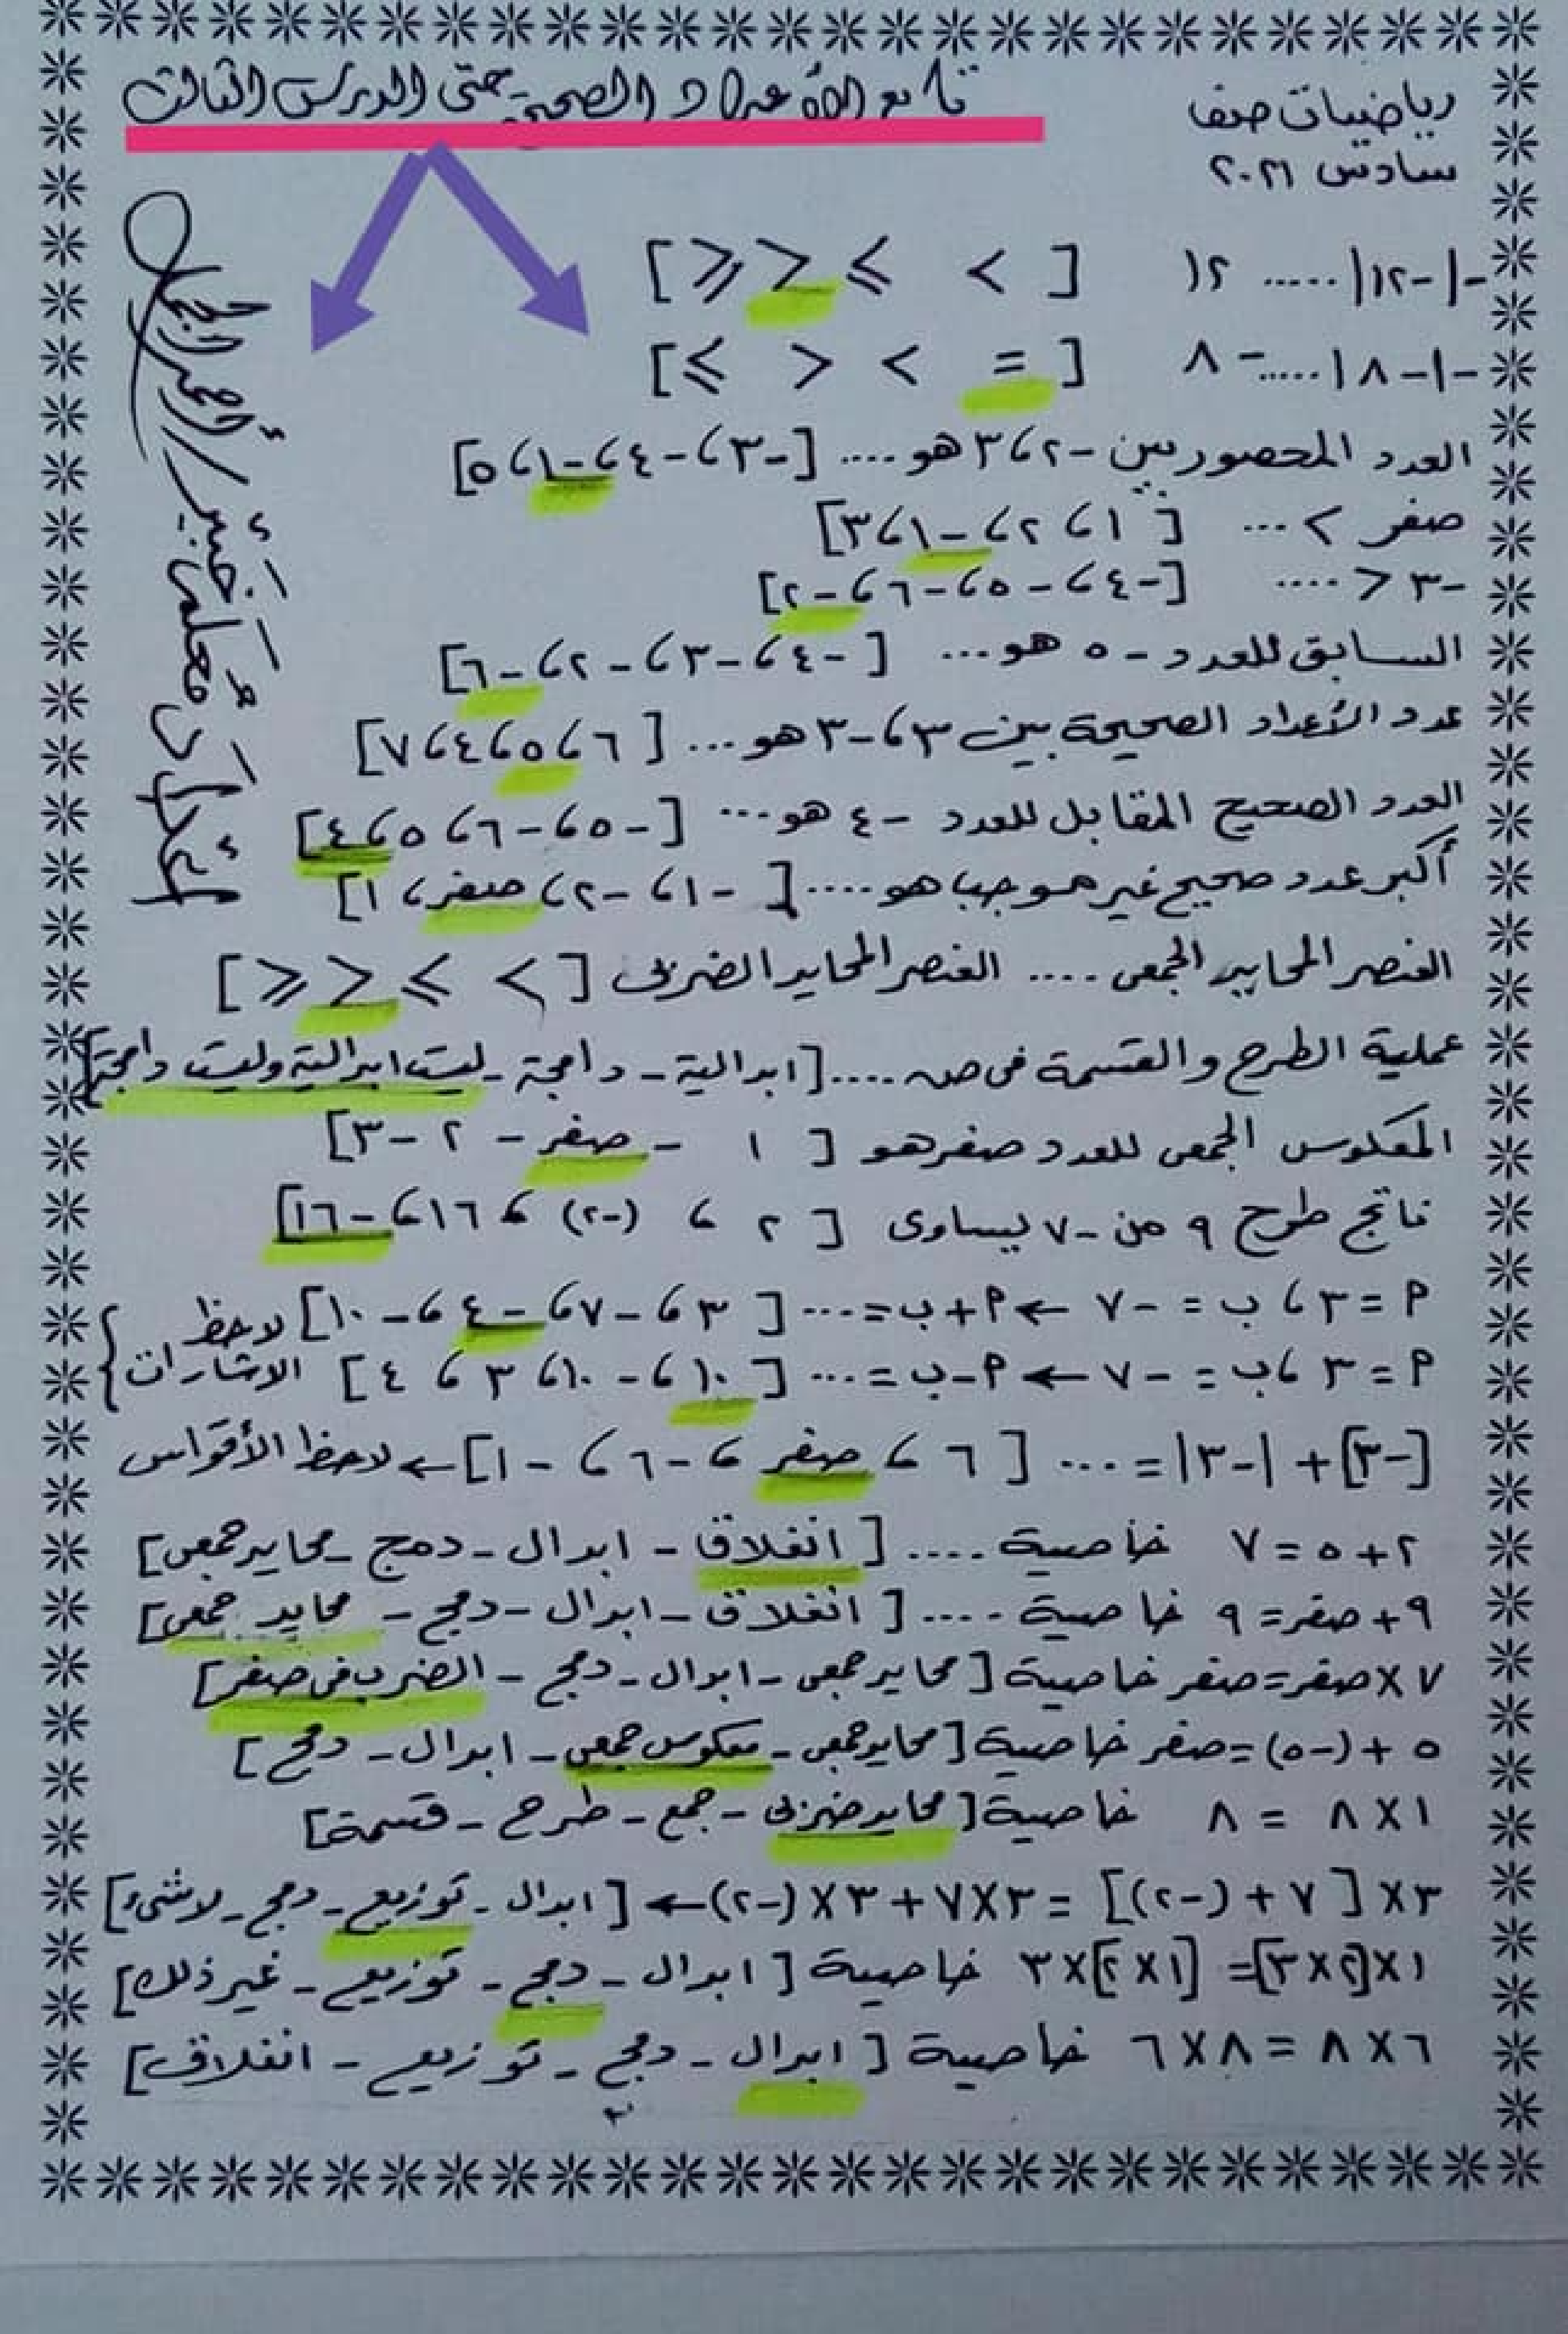 تابع الأعداد الصحيحة حتى الدرس الثالث
رياضيات صف
سادس ٢٠٢١
-|-١٢| ..... ١٢ [ > ≥ < ≤ ]
-|-٨| .....-٨ [ = > < ≥ ]
العدد المحصور بين -٢ ، ٣ هو .... [-٣ ، -٤ ، -١ ، ٥]
صفر > ... [ ١ ، ٢ ، -١ ، ٣]
-٣ < .... [-٤ ، -٥ ، -٦ ، -٢]
السابق للعدد -٥ هو ... [-٤ ، -٣ ، -٢ ، -٦]
عدد الأعداد الصحيحة بين ٣ ، -٣ هو ... [ ٦ ، ٥ ، ٤ ، ٧]
العدد الصحيح المقابل للعدد -٤ هو ... [-٥ ، -٦ ، ٥ ، ٤]
أكبر عدد صحيح غير موجب هو .... [ -١ ، -٢ ، صفر ، ١]
العنصر المحايد الجمعى .... العنصر المحايد الضربى [ > ≥ < ≤ ]
عملية الطرح والقسمة فى صـ .... [ابدالية - دامجة - ليست ابدالية وليست دامجة]
المعكوس الجمعى للعدد صفر هو [ ١ - صفر - ٢ - ٣]
ناتج طرح ٩ من -٧ يساوى [ ٢ ، (-٢) ، ١٦ ، -١٦]
م = ٣ ، ب = -٧ ← م + ب = ... [ ٣ ، -٧ ، -٤ ، -١٠] لاحظ
م = ٣ ، ب = -٧ ← م - ب = ... [ ١٠ ، -١٠ ، ٣ ، ٤ ] الاشارات
[-٣] + |-٣| = ... [ ٦ ، صفر ، -٦ ، -١] ← لاحظ الأقواس
٢ + ٥ = ٧ خاصية .... [ انغلاق - ابدال - دمج - محايد جمعى]
٩ + صفر = ٩ خاصية .... [ انغلاق - ابدال - دمج - محايد جمعى]
٧ × صفر = صفر خاصية [ محايد جمعى - ابدال - دمج - الضرب فى صفر]
٥ + (-٥) = صفر خاصية [ محايد جمعى - معكوس جمعى - ابدال - دمج]
١ × ٨ = ٨ خاصية [ محايد ضربى - جمع - طرح - قسمة]
٣ × [ ٧ + (-٢)] = ٣ × ٧ + ٣ × (-٢) ← [ ابدال - توزيع - دمج - لاشىء]
١ × [٢ × ٣] = [١ × ٢] × ٣ خاصية [ ابدال - دمج - توزيع - غير ذلك]
٦ × ٨ = ٨ × ٦ خاصية [ ابدال - دمج - توزيع - انغلاق]